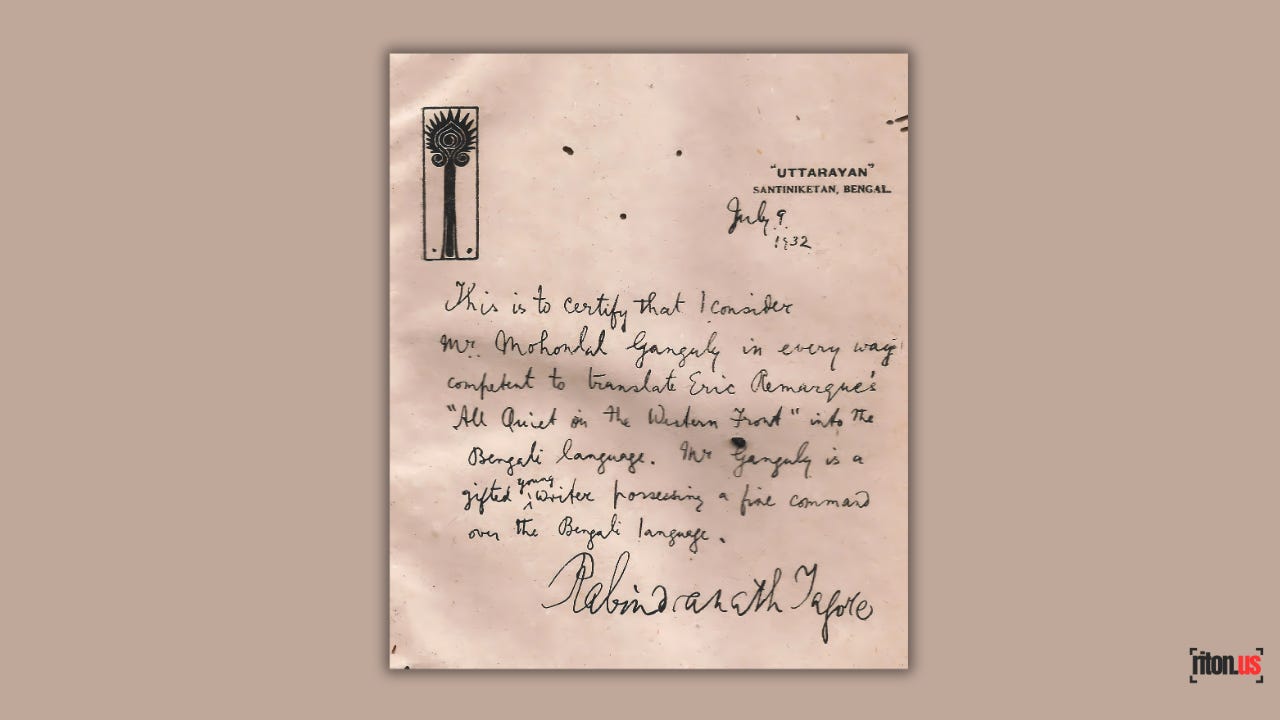 "UTTARAYAN"
SANTINIKETAN, BENGAL.
July 9.
1932
This is to certify that I consider
Mr. Mohonlal Ganguly in every way
competent to translate Eric Remarque's
"All Quiet on the Western Front" into the
Bengali language. Mr Ganguly is a
gifted young writer possessing a fine command
over the Bengali language.
Rabindranath Tagore
riton.us